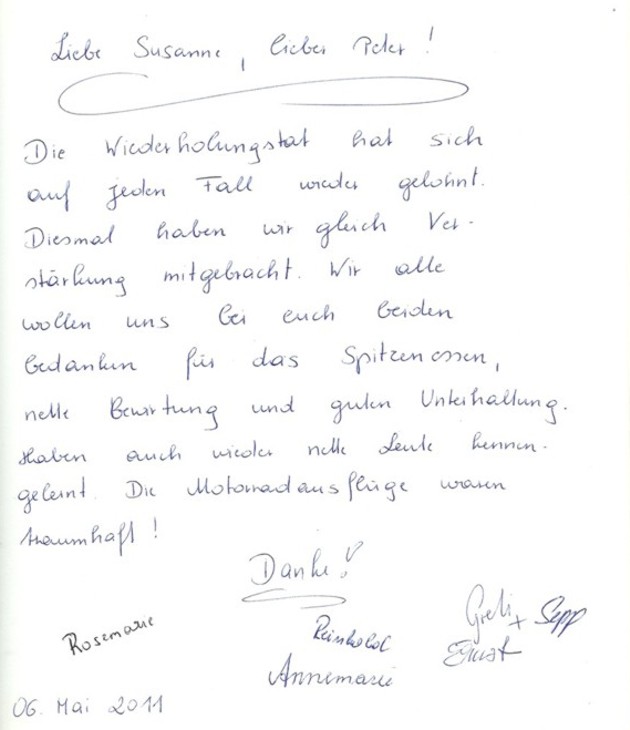 Liebe Susanne, lieber Peter!
Die Wiederholungstat hat sich
auf jeden Fall wieder gelohnt.
Diesmal haben wir gleich Ver-
stärkung mitgebracht. Wir alle
wollen uns bei euch beiden
bedanken für das Spitzenessen,
nette Bewirtung und guten Unterhaltung.
Haben auch wieder nette Leute kennen-
gelernt. Die Motorradausflüge waren
traumhaft!
Danke!
Rosemarie
Reinhold
Annemarie
Greti + Sepp
Ernst
06. Mai 2011